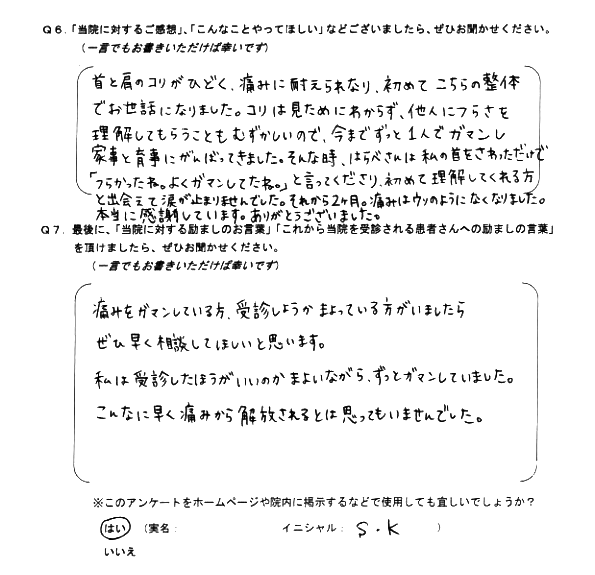 Q6．「当院に対するご感想」、「こんなことやってほしい」などございましたら、ぜひお聞かせください。
（一言でもお書きいただけば幸いです）
首と肩のコリがひどく、痛みに耐えられなり、初めてこちらの整体
でお世話になりました。コリは見ためにわからず、他人につらさを
理解してもらうこともむずかしいので、今までずっと1人でガマンし
家事と育事にがんばってきました。そんな時、はらべさんは私の首をさわっただけで
「つらかったね。よくガマンしてたね。」と言ってくださり、初めて理解してくれる方
と出会えて涙が止まりませんでした。それから2ヶ月。痛みはウソのようになくなりました。
本当に感謝しています。ありがとうございました。
Q7．最後に、「当院に対する励ましのお言葉」「これから当院を受診される患者さんへの励ましの言葉」
を頂けましたら、ぜひお聞かせください。
（一言でもお書きいただけば幸いです）
痛みをガマンしている方、受診しようかまよっている方がいましたら
ぜひ早く相談してほしいと思います。
私は受診したほうがいいのかまよいながら、ずっとガマンしていました。
こんなに早く痛みから解放されるとは思ってもいませんでした。
※このアンケートをホームページや院内に掲示するなどで使用しても宜しいでしょうか？
はい （実名： イニシャル： S．K ）
いいえ